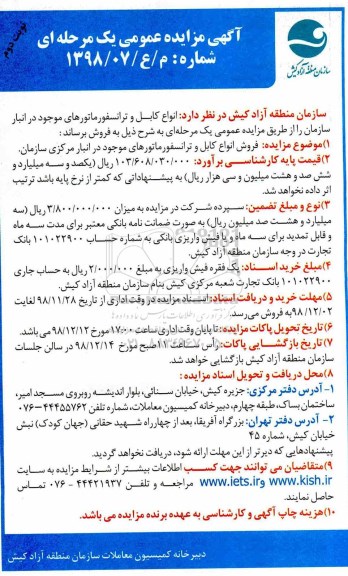 نوبت دوم
آگهی مزایده عمومی یک مرحله ای
شماره: م/ع/۱۳۹۸/۰۷
سازمان منطقه آزاد کیش
سازمان منطقه آزاد کیش در نظر دارد: انواع کابل و ترانسفورماتورهای موجود در انبار
سازمان را از طریق مزایده عمومی یک مرحله‌ای به شرح ذیل به فروش برساند:
۱)موضوع مزایده: فروش انواع کابل و ترانسفورماتورهای موجود در انبار مرکزی سازمان.
۲)قیمت پایه کارشناسی برآورد: ۱۰۳/۶۰۸/۰۳۰/۰۰۰ ریال (یکصد و سه میلیارد و
شش صد و هشت میلیون و سی هزار ریال) به پیشنهاداتی که کمتر از نرخ پایه باشد ترتیب
اثر داده نخواهد شد.
۳)نوع و مبلغ تضمین: سپرده شرکت در مزایده به میزان ۳/۸۰۰/۰۰۰/۰۰۰ ریال (سه
میلیارد و هشت صد میلیون ریال) به صورت ضمانت نامه بانکی معتبر برای مدت سه ماه
و قابل تمدید برای سه ماه و یا فیش واریزی بانکی به شماره حساب ۱۰۱۰۲۲۹۰۰ بانک
تجارت در وجه سازمان منطقه آزاد کیش.
۴)مبلغ خرید اسناد: یک فقره فیش واریزی به مبلغ ۲/۰۰۰/۰۰۰ ریال به حساب جاری
۱۰۱۰۲۲۹۰۰ بانک تجارت شعبه مرکزی کیش بنام سازمان منطقه آزاد کیش.
۵)مهلت خرید و دریافت اسناد: اسناد مزایده در وقت اداری از تاریخ ۹۸/۱۱/۲۸ لغایت
۹۸/۱۲/۰۲ به فروش می‌رسد.
۶)تاریخ تحویل پاکات مزایده: تا پایان وقت اداری ساعت ۱۷:۰۰ مورخ ۹۸/۱۲/۱۲ می باشد.
۷)تاریخ بازگشایی پاکات: رأس ساعت ۱۱ صبح مورخ ۹۸/۱۲/۱۴ در سالن جلسات
سازمان منطقه آزاد کیش بازگشایی خواهد شد.
۸)محل دریافت و تحویل اسناد مزایده:
۱- آدرس دفتر مرکزی: جزیره کیش، خیابان سنائی، بلوار اندیشه روبروی مسجد امیر،
ساختمان بساک، طبقه چهارم، دبیرخانه کمیسیون معاملات، شماره تلفن ۴۴۴۵۵۷۶۲-۰۷۶
۲- آدرس دفتر تهران: بزرگراه آفریقا، بعد از چهارراه شهید حقانی (جهان کودک) نبش
خیابان کیش، شماره ۴۵
پیشنهادهایی که دیرتر از این مهلت ارائه شود، دریافت نخواهد گردید.
۹)متقاضیان می توانند جهت کسب اطلاعات بیشتر از شرایط مزایده به سایت
www.kish.ir و www.iets.ir مراجعه و تلفن ۴۴۴۲۱۹۳۷ - ۰۷۶ تماس
حاصل نمایند.
۱۰)هزینه چاپ آگهی و کارشناسی به عهده برنده مزایده می باشد.
دبیرخانه کمیسیون معاملات سازمان منطقه آزاد کیش